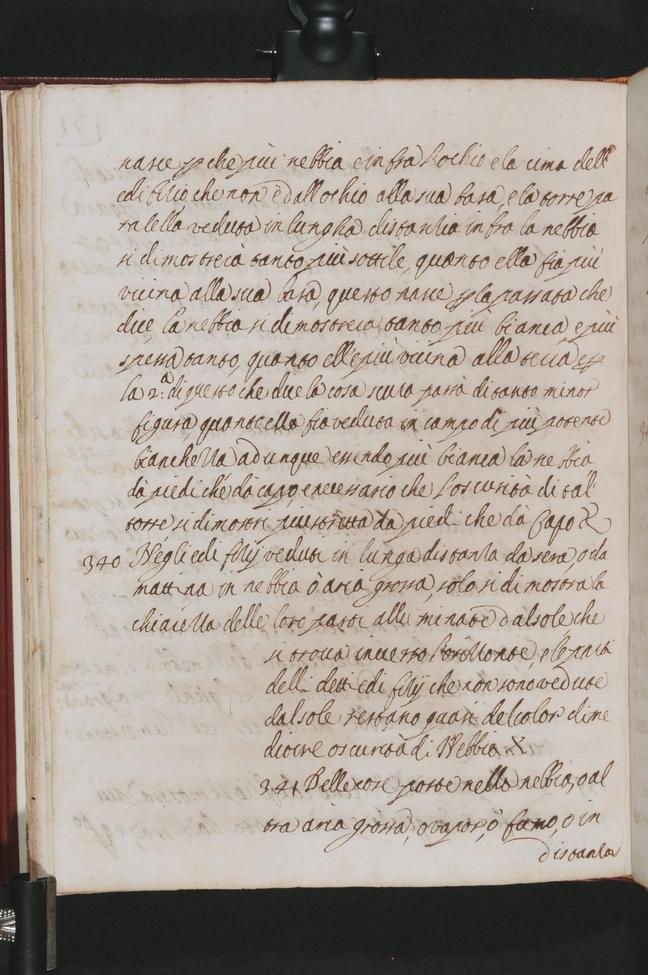 nasce p che piu nebbia e infra l'ochio e la cima dell
edifitio che non è dall'ochio alla sua basa, e la torre pa
ralella veduta in lungha distantia infra la nebbia
si dimostrerà tanto più sottile, quanto ella fia più
vicina alla sua basa, questo nasce p la passata che
dice, la nebbia si dimostrera tanto più bianca e più
spessa tanto, quanto ell'e più vicina alla terra e p
la 2.ª di questo che dice la cosa scura parrà di tanto minor
figura, quanto ella fia veduta in campo di più potente
bianchezza adunque essendo più bianca la nebbia
da piedi che da capo, e necessario che l'oscurità di tal
torre si dimostri piu stretta da piedi che da Capo
340 Negli edifitij veduti in lunga distantia da sera, o da
mattina in nebbia ò aria grossa, solo si dimostra la
chiarezza delle loro parti alluminate dal sole che
si trova inverso l'orizzonte, e le parti
delli detti edifitij che non sono vedute
dal sole restano quasi del color di me
diocre oscurità di Nebbia
341 Delle cose poste nella nebbia, o al
tra aria grossa, o vapor, ò fumo, o in
distantia